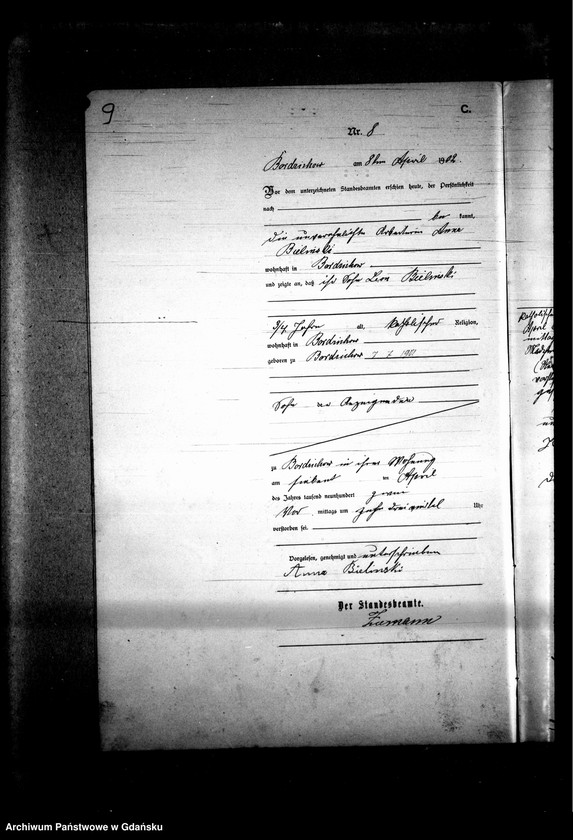 9
C.
Nr. 8
Bordzichow am 8ten April 1902.
Vor dem unterzeichneten Standesbeamten erschien heute, der Persönlichkeit
nach
be kannt,
die unverehelichte Arbeiterin Anna
Bielinski
wohnhaft in Bordzichow
und zeigte an, daß ihr Sohn Leon Bielinski
3/4 Jahre alt, katholischer Religion,
wohnhaft in Bordzichow
geboren zu Bordzichow 7 7 1901
Sohn der Anzeigenden
zu Bordzichow in ihrer Wohnung
am siebent en April
des Jahres tausend neunhundert zwei
Vor mittags um zehn dreiviertel Uhr
verstorben sei.
Vorgelesen, genehmigt und unterschrieben
Anna Bielinski
Der Standesbeamte.
Ziemann
Archiwum Państwowe w Gdańsku